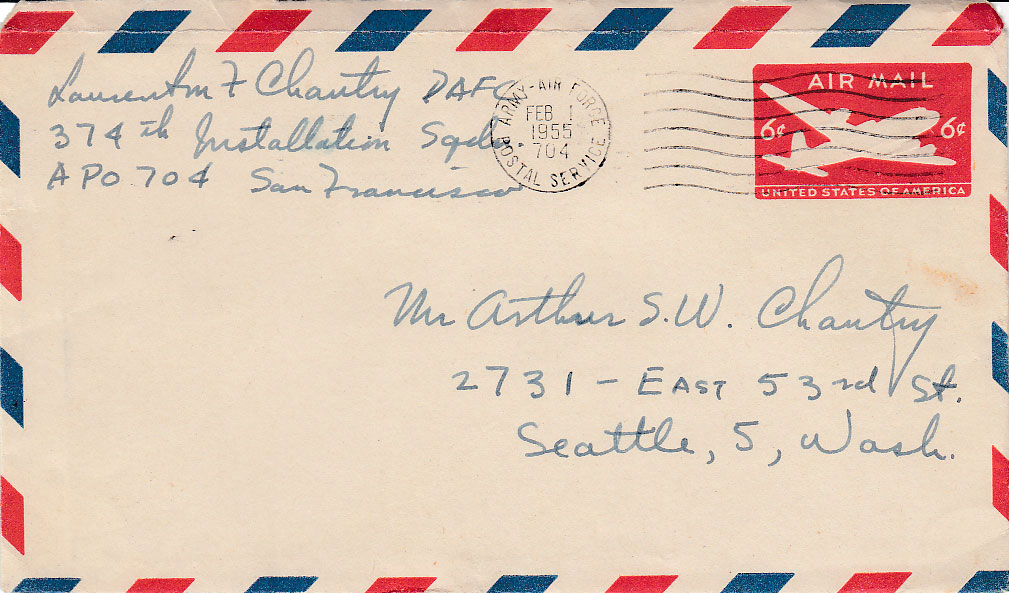 F Chantry DAFC
374th Installation Sqdn.
APO 704 San Francisco
ARMY-AIR FORCE
FEB 1
1955
704
POSTAL SERVICE
AIR MAIL
6¢ 6¢
UNITED STATES OF AMERICA
Mr Arthur S.W. Chantry
2731 - EAST 53rd St.
Seattle, 5, Wash.